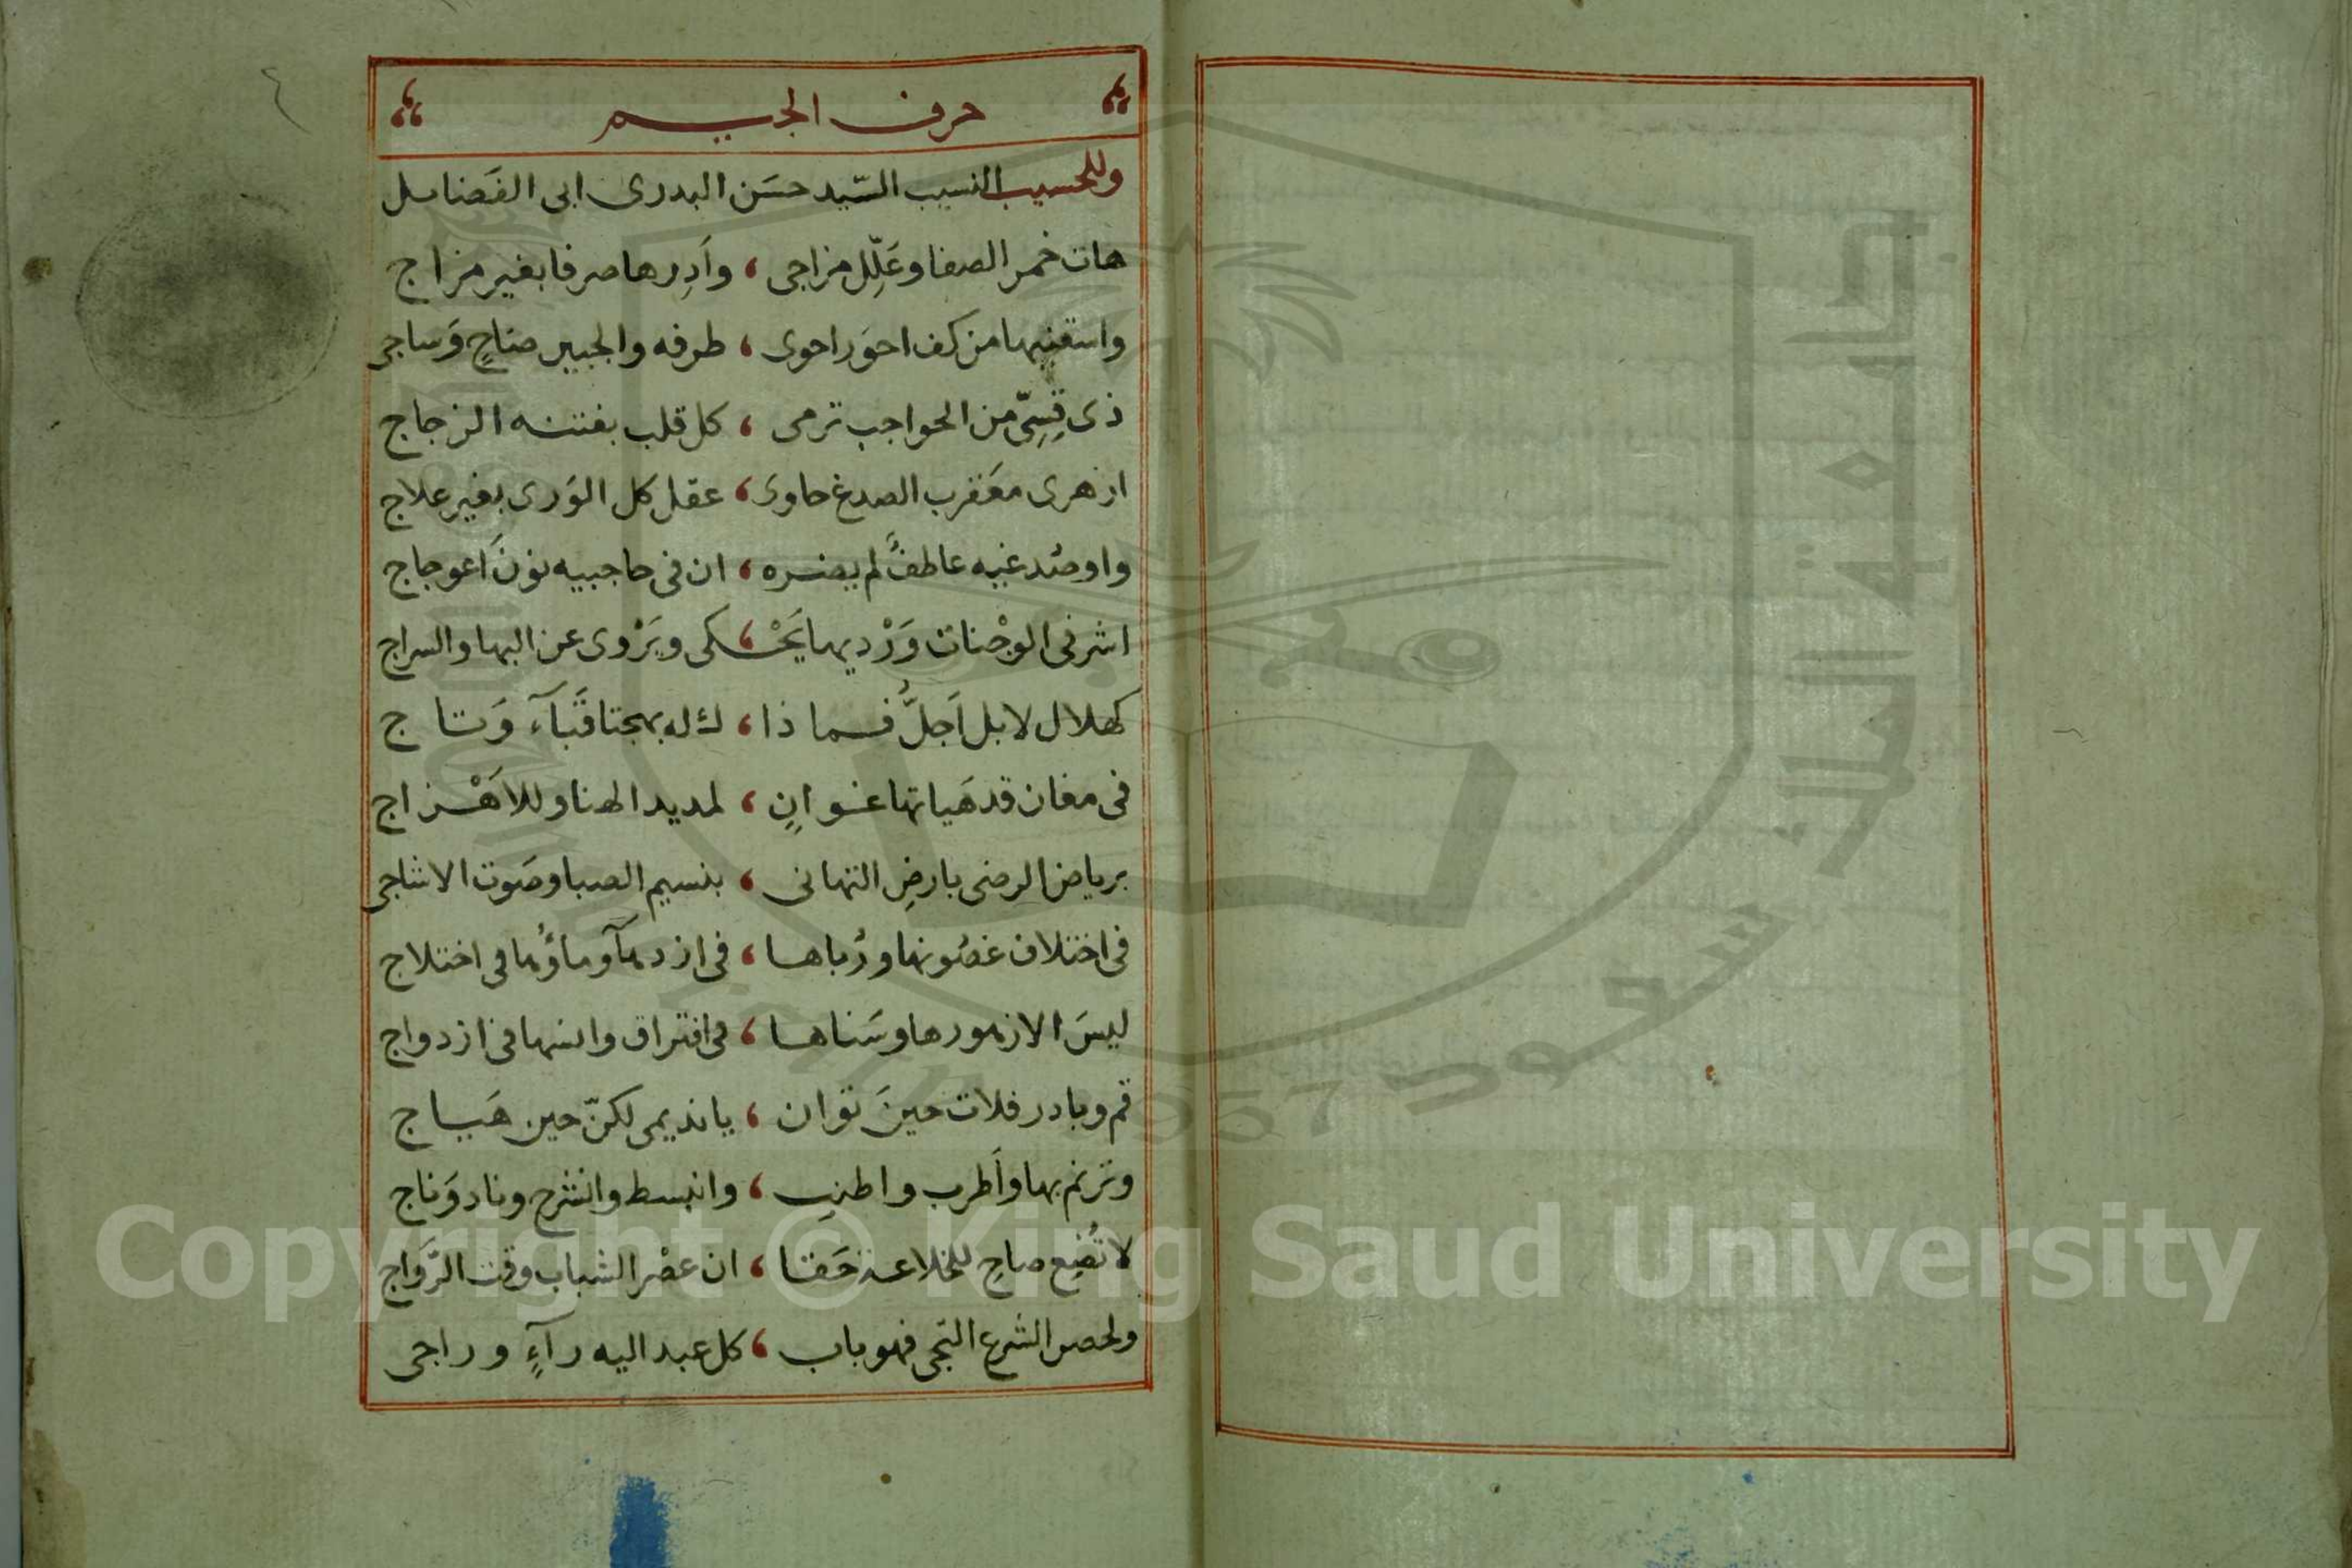 حرف الجيم
وللحسيب النسيب السّيد حسَن البدرى ابى الفَضايل
هات خمر الصفا وعَلِّل مزاجى ، وآدِرها صرفا بغير مزاج
واسقنيها من كف احوَر احوى ، طرفه والجبين صَاحٍ وَساجى
ذى قِسِىّ من الحواجب ترمى ، كل قلب بفتنه الزجاج
ازهرى معَقرب الصدغ حاوى ، عقل كل الوَرى بغير علاج
واو صُدغيه عاطفً لم يضره ، ان فى حاجبيه نونَ اعوجاج
اشرفى الوجْنات وَرْديها يَحْـ ، ـكى ويَرْوى عن البها والسراج
كهلال لا بل اَجلُّ فما ذا ، ك له بهجتا قَبَآءَ وَتاج
فى مغان قد هَياتها غوانٍ ، لمديد الهنا وللاَهْزاج
برياض الرضى بارضِ التهانى ، بنسيم الصبا وصَوت الاشاجى
فى اختلاف غصُونها ورُباها ، فى ازدهآ وماؤُها فى اختلاج
ليسَ الا زهورها وسَناها ، فى افتراق وانسها فى ازدواج
قم وبادر فلات حينَ توان ، يا نديمى لكنّ حين هَياج
وترنم بها واَطرب واطنِب ، وانبسط وانشرح وناد وَناج
لا تُضِع صاحِ للخلاعة حَقا ، ان عصْر الشباب وقت الرَّواج
ولحصن الشرع التجى فهو باب ، كل عبد اليه رآءٍ وراجى
٤
Copyright © King Saud University
1957